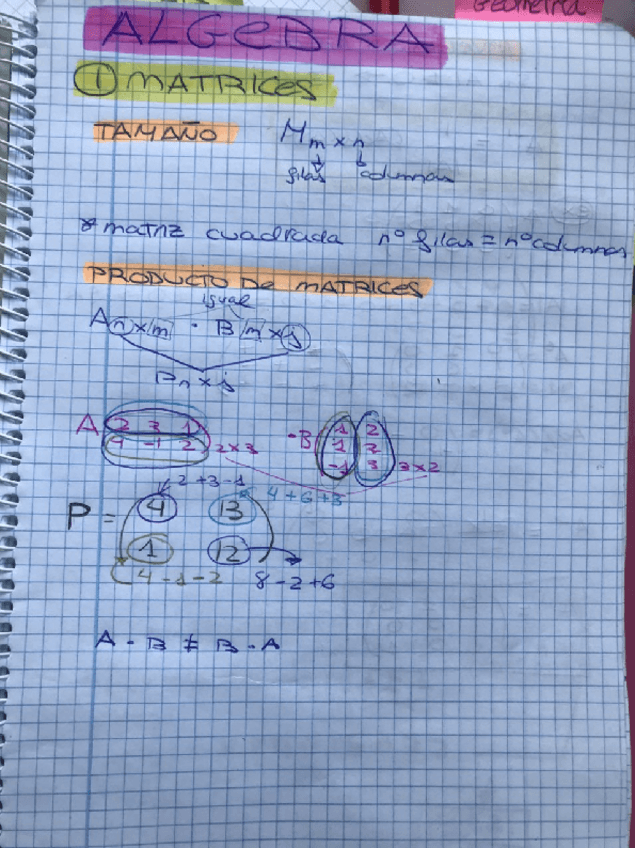 Geometria
ALGEBRA
① MATRICES
TAMAÑO M m x n
filas columnas
* matriz cuadrada nº filas = nº columnas
PRODUCTO DE MATRICES
igual
A n x m · B m x j
P n x j
A 2 3 1 · B 1 2
4 -1 2 2x3 1 2
-1 3 3x2
2+3-1 4+6+3
P = 4 13
1 12
4-1-2 8-2+6
A · B ≠ B · A